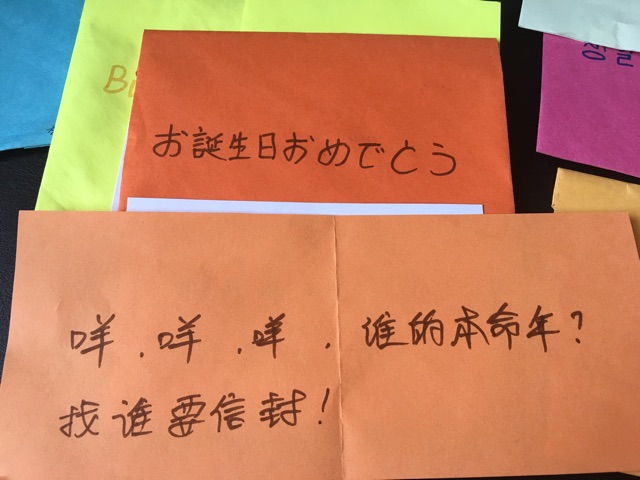 Bi
お誕生日おめでとう
咩,咩,咩,谁的本命年?
找谁要信封!